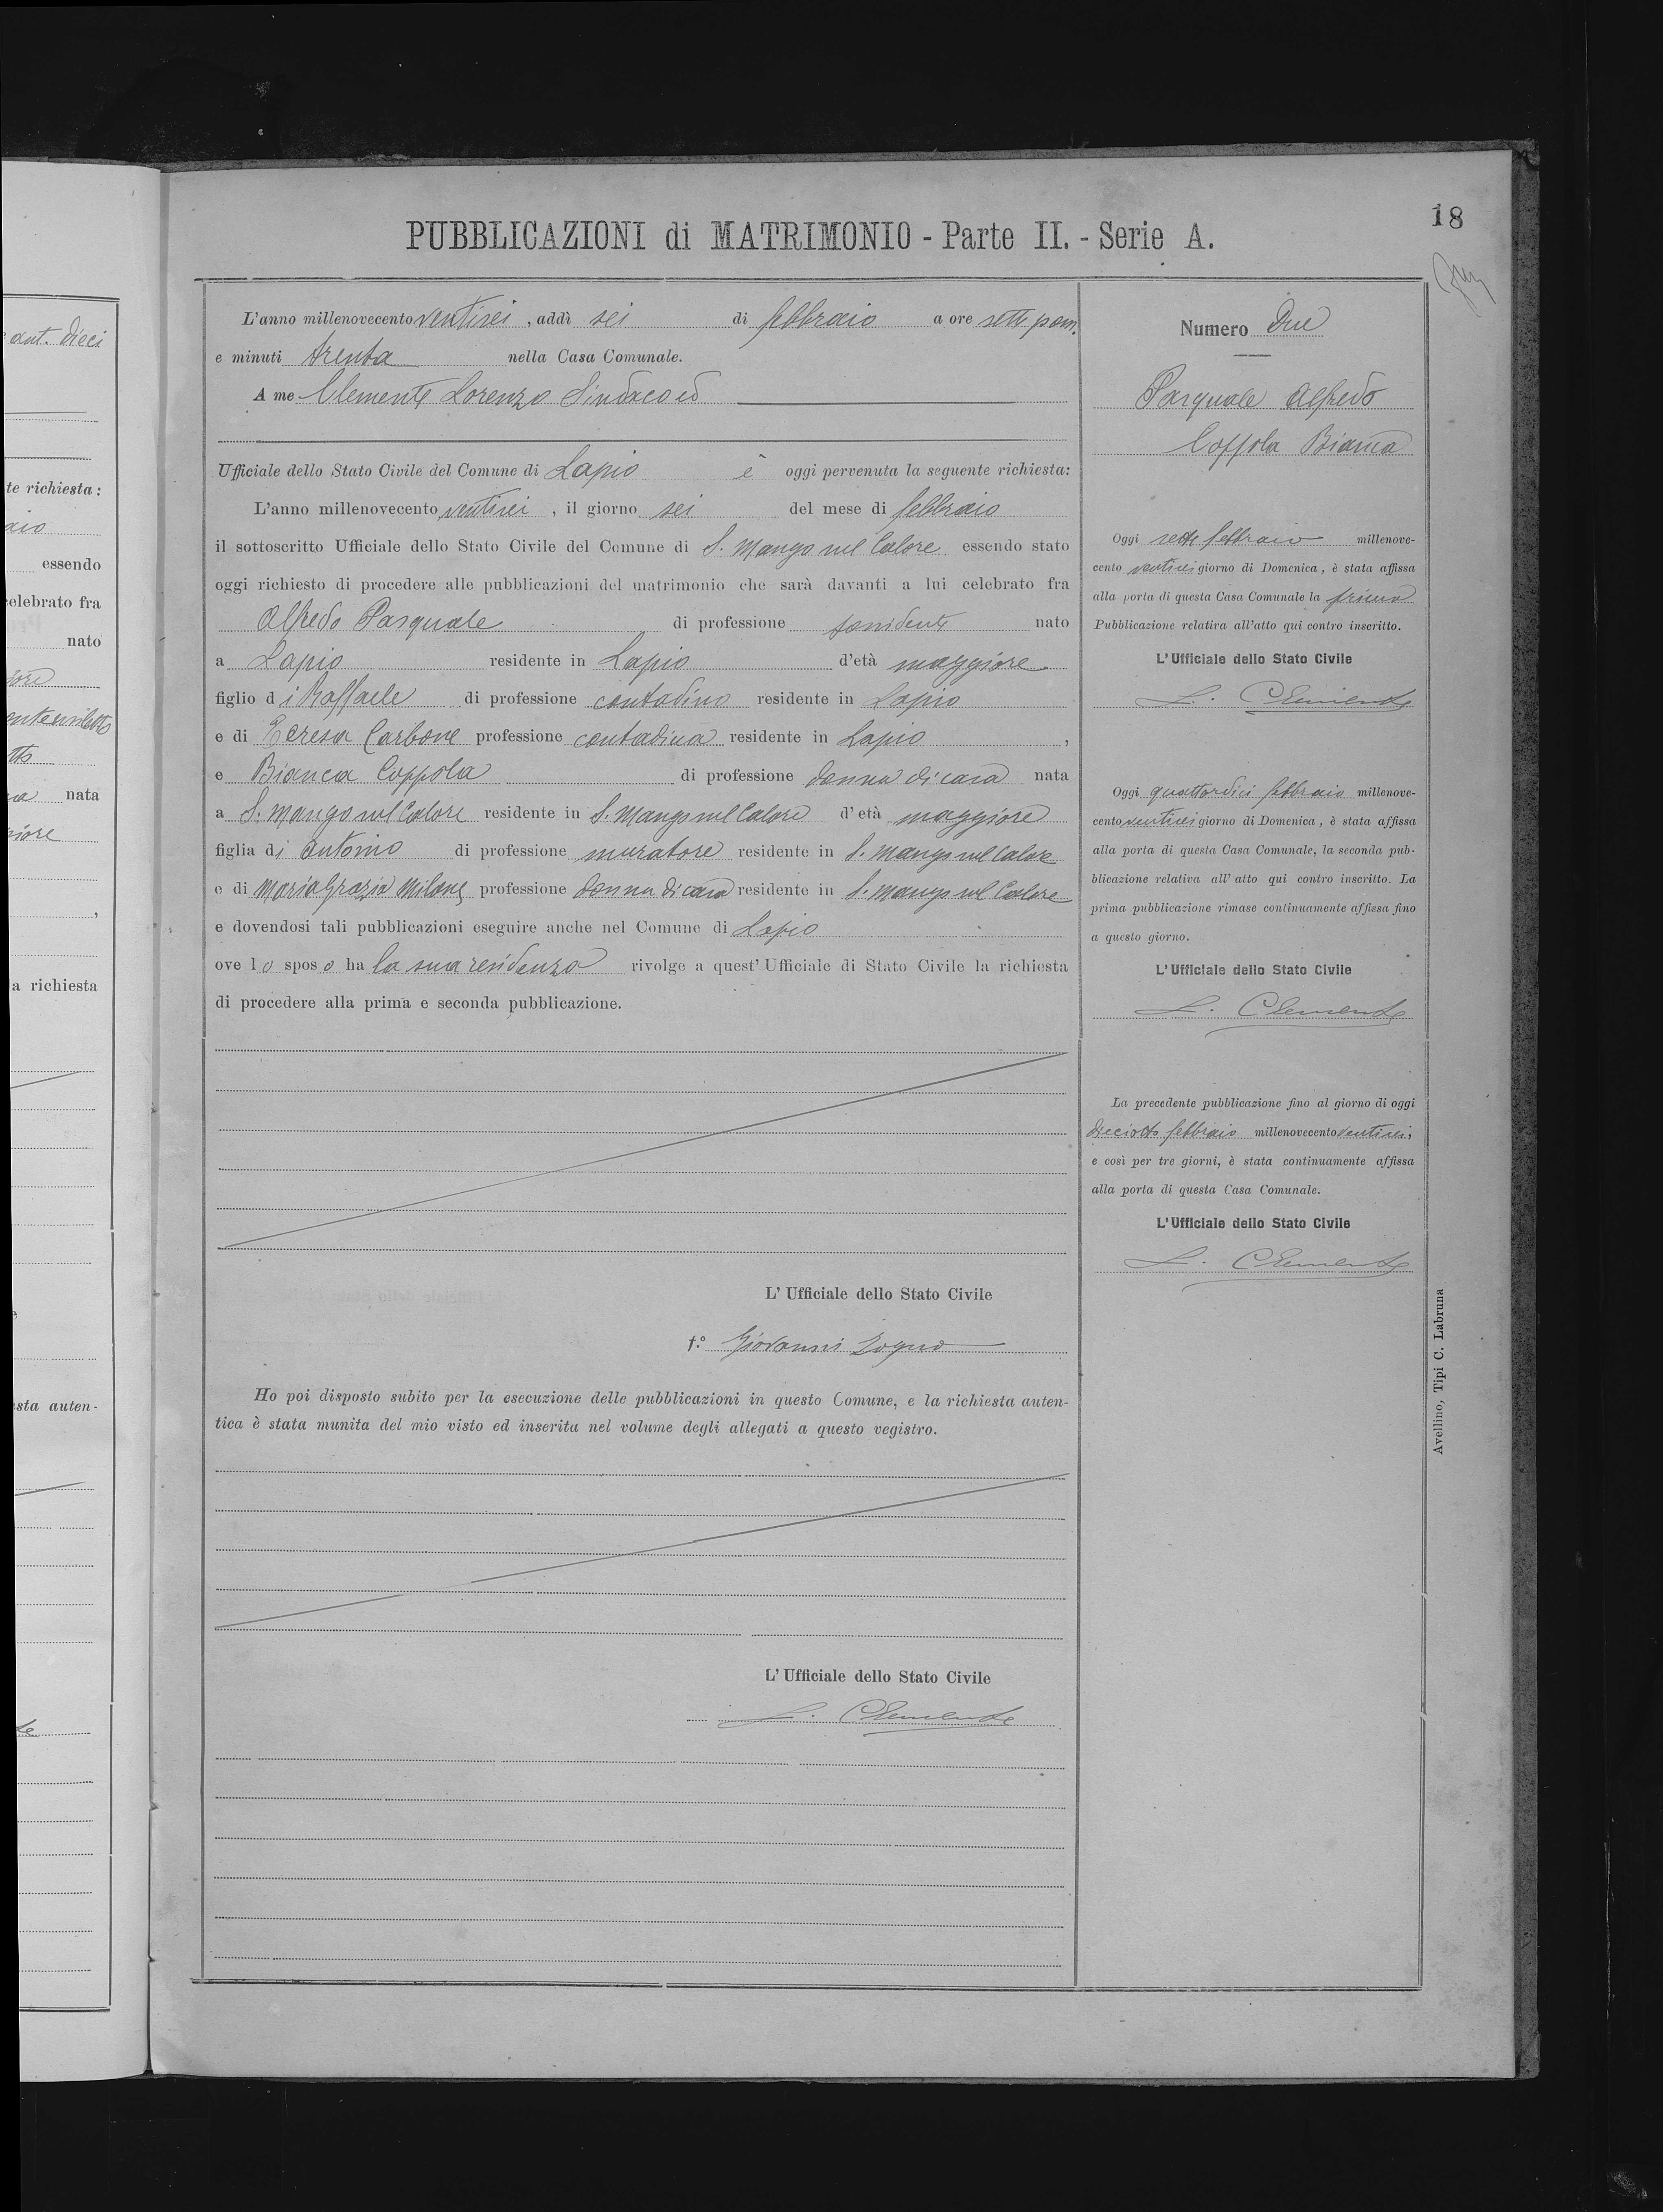 18
PUBBLICAZIONI di MATRIMONIO - Parte II. - Serie A.
L'anno millenovecento ventisei , addì sei di febbraio a ore sette pom.
e minuti trenta nella Casa Comunale.
A me Clemente Lorenzo Sindaco ed
Ufficiale dello Stato Civile del Comune di Lapio è oggi pervenuta la seguente richiesta:
L'anno millenovecento ventisei , il giorno sei del mese di febbraio
il sottoscritto Ufficiale dello Stato Civile del Comune di S. Mango sul Calore essendo stato
oggi richiesto di procedere alle pubblicazioni del matrimonio che sarà davanti a lui celebrato fra
Alfredo Pasquale di professione possidente nato
a Lapio residente in Lapio d'età maggiore
figlio di Raffaele di professione contadino residente in Lapio
e di Teresa Carbone professione contadina residente in Lapio ,
e Bianca Coppola di professione donna di casa nata
a S. Mango sul Calore residente in S. Mango sul Calore d'età maggiore
figlia di Antonio di professione muratore residente in S. Mango sul Calore
e di Maria Grazia Milone professione donna di casa residente in S. Mango sul Calore
e dovendosi tali pubblicazioni eseguire anche nel Comune di Lapio
ove lo sposo ha la sua residenza rivolge a quest' Ufficiale di Stato Civile la richiesta
di procedere alla prima e seconda pubblicazione.
L' Ufficiale dello Stato Civile
f.° Giovanni Zogno
Ho poi disposto subito per la esecuzione delle pubblicazioni in questo Comune, e la richiesta auten-
tica è stata munita del mio visto ed inserita nel volume degli allegati a questo vegistro.
L' Ufficiale dello Stato Civile
L. Clemente
Numero Due
Pasquale Alfredo
Coppola Bianca
Oggi sette febbraio millenove-
cento ventisei giorno di Domenica, è stata affissa
alla porta di questa Casa Comunale la prima
Pubblicazione relativa all'atto qui contro inscritto.
L'Ufficiale dello Stato Civile
L. Clemente
Oggi quattordici febbraio millenove-
cento ventisei giorno di Domenica, è stata affissa
alla porta di questa Casa Comunale, la seconda pub-
blicazione relativa all' atto qui contro inscritto. La
prima pubblicazione rimase continuamente affissa fino
a questo giorno.
L'Ufficiale dello Stato Civile
L. Clemente
La precedente pubblicazione fino al giorno di oggi
dieciotto febbraio millenovecento ventisei,
e così per tre giorni, è stata continuamente affissa
alla porta di questa Casa Comunale.
L'Ufficiale dello Stato Civile
L. Clemente
Avellino, Tipi C. Labruna
ant. dieci
te richiesta:
essendo
celebrato fra
nato
nata
a richiesta
sta auten-